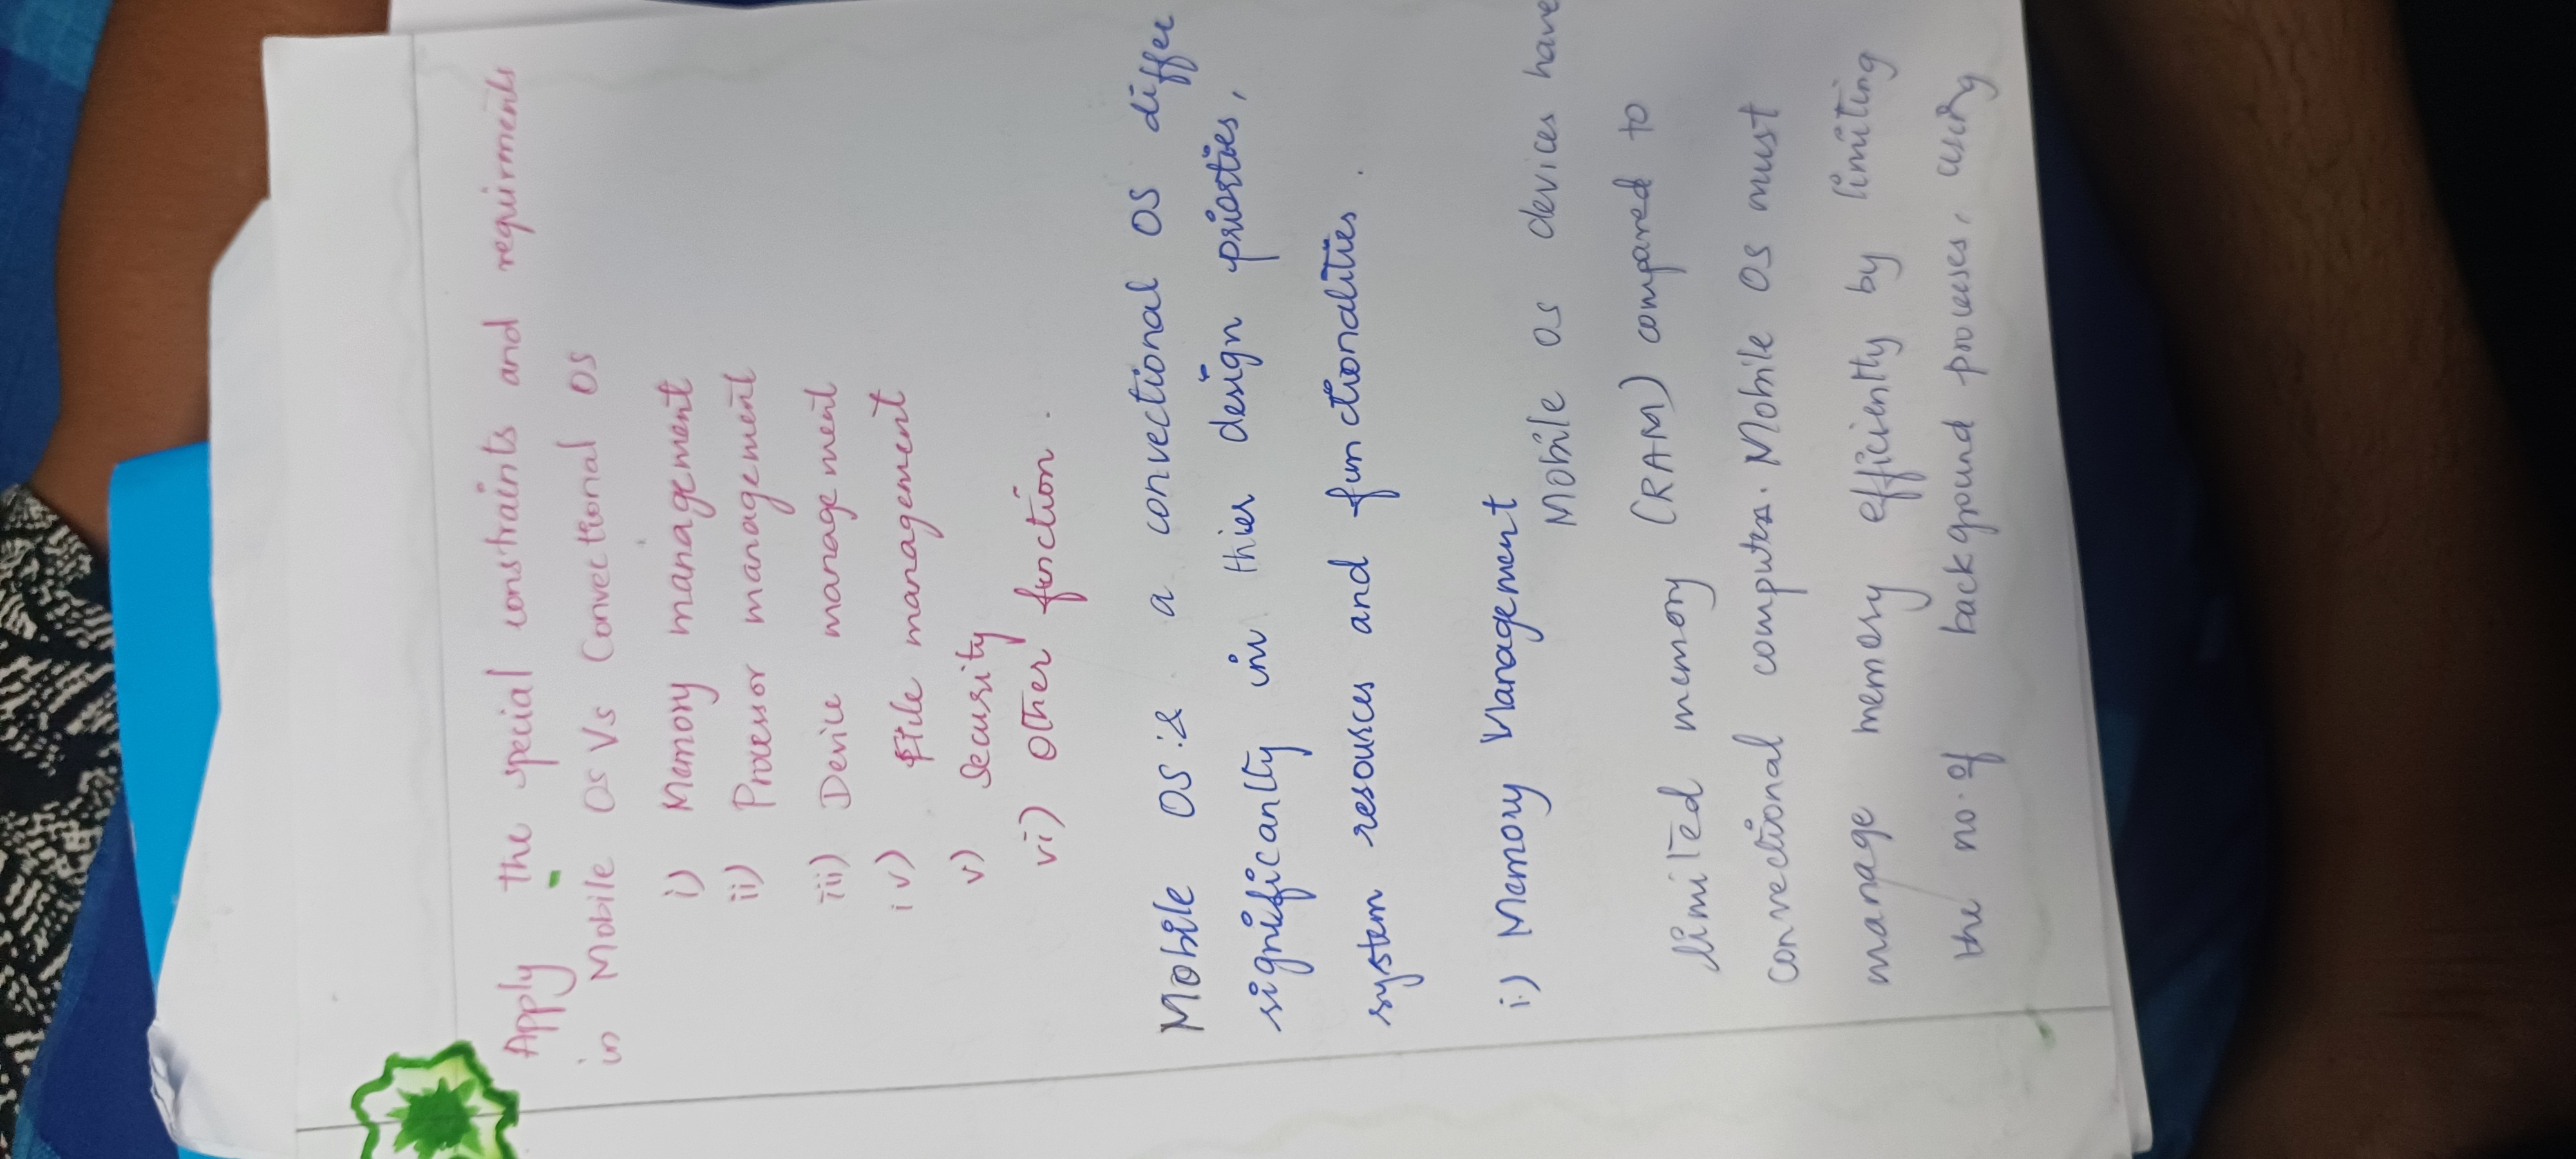 Apply the special constraints and requirments
in Mobile OS Vs Convectional OS
i) Memory management
ii) Processor management
iii) Device management
iv) File management
v) Security
vi) Other function.
Mobile OS & a convectional OS differ
significanlty in thier design priorties,
system resources and functionalities.
i.) Memory Management
Mobile OS devices have
limited memory (RAM) compared to
convectional computer. Mobile OS must
manage memory efficiently by limiting
the no. of background processes, using